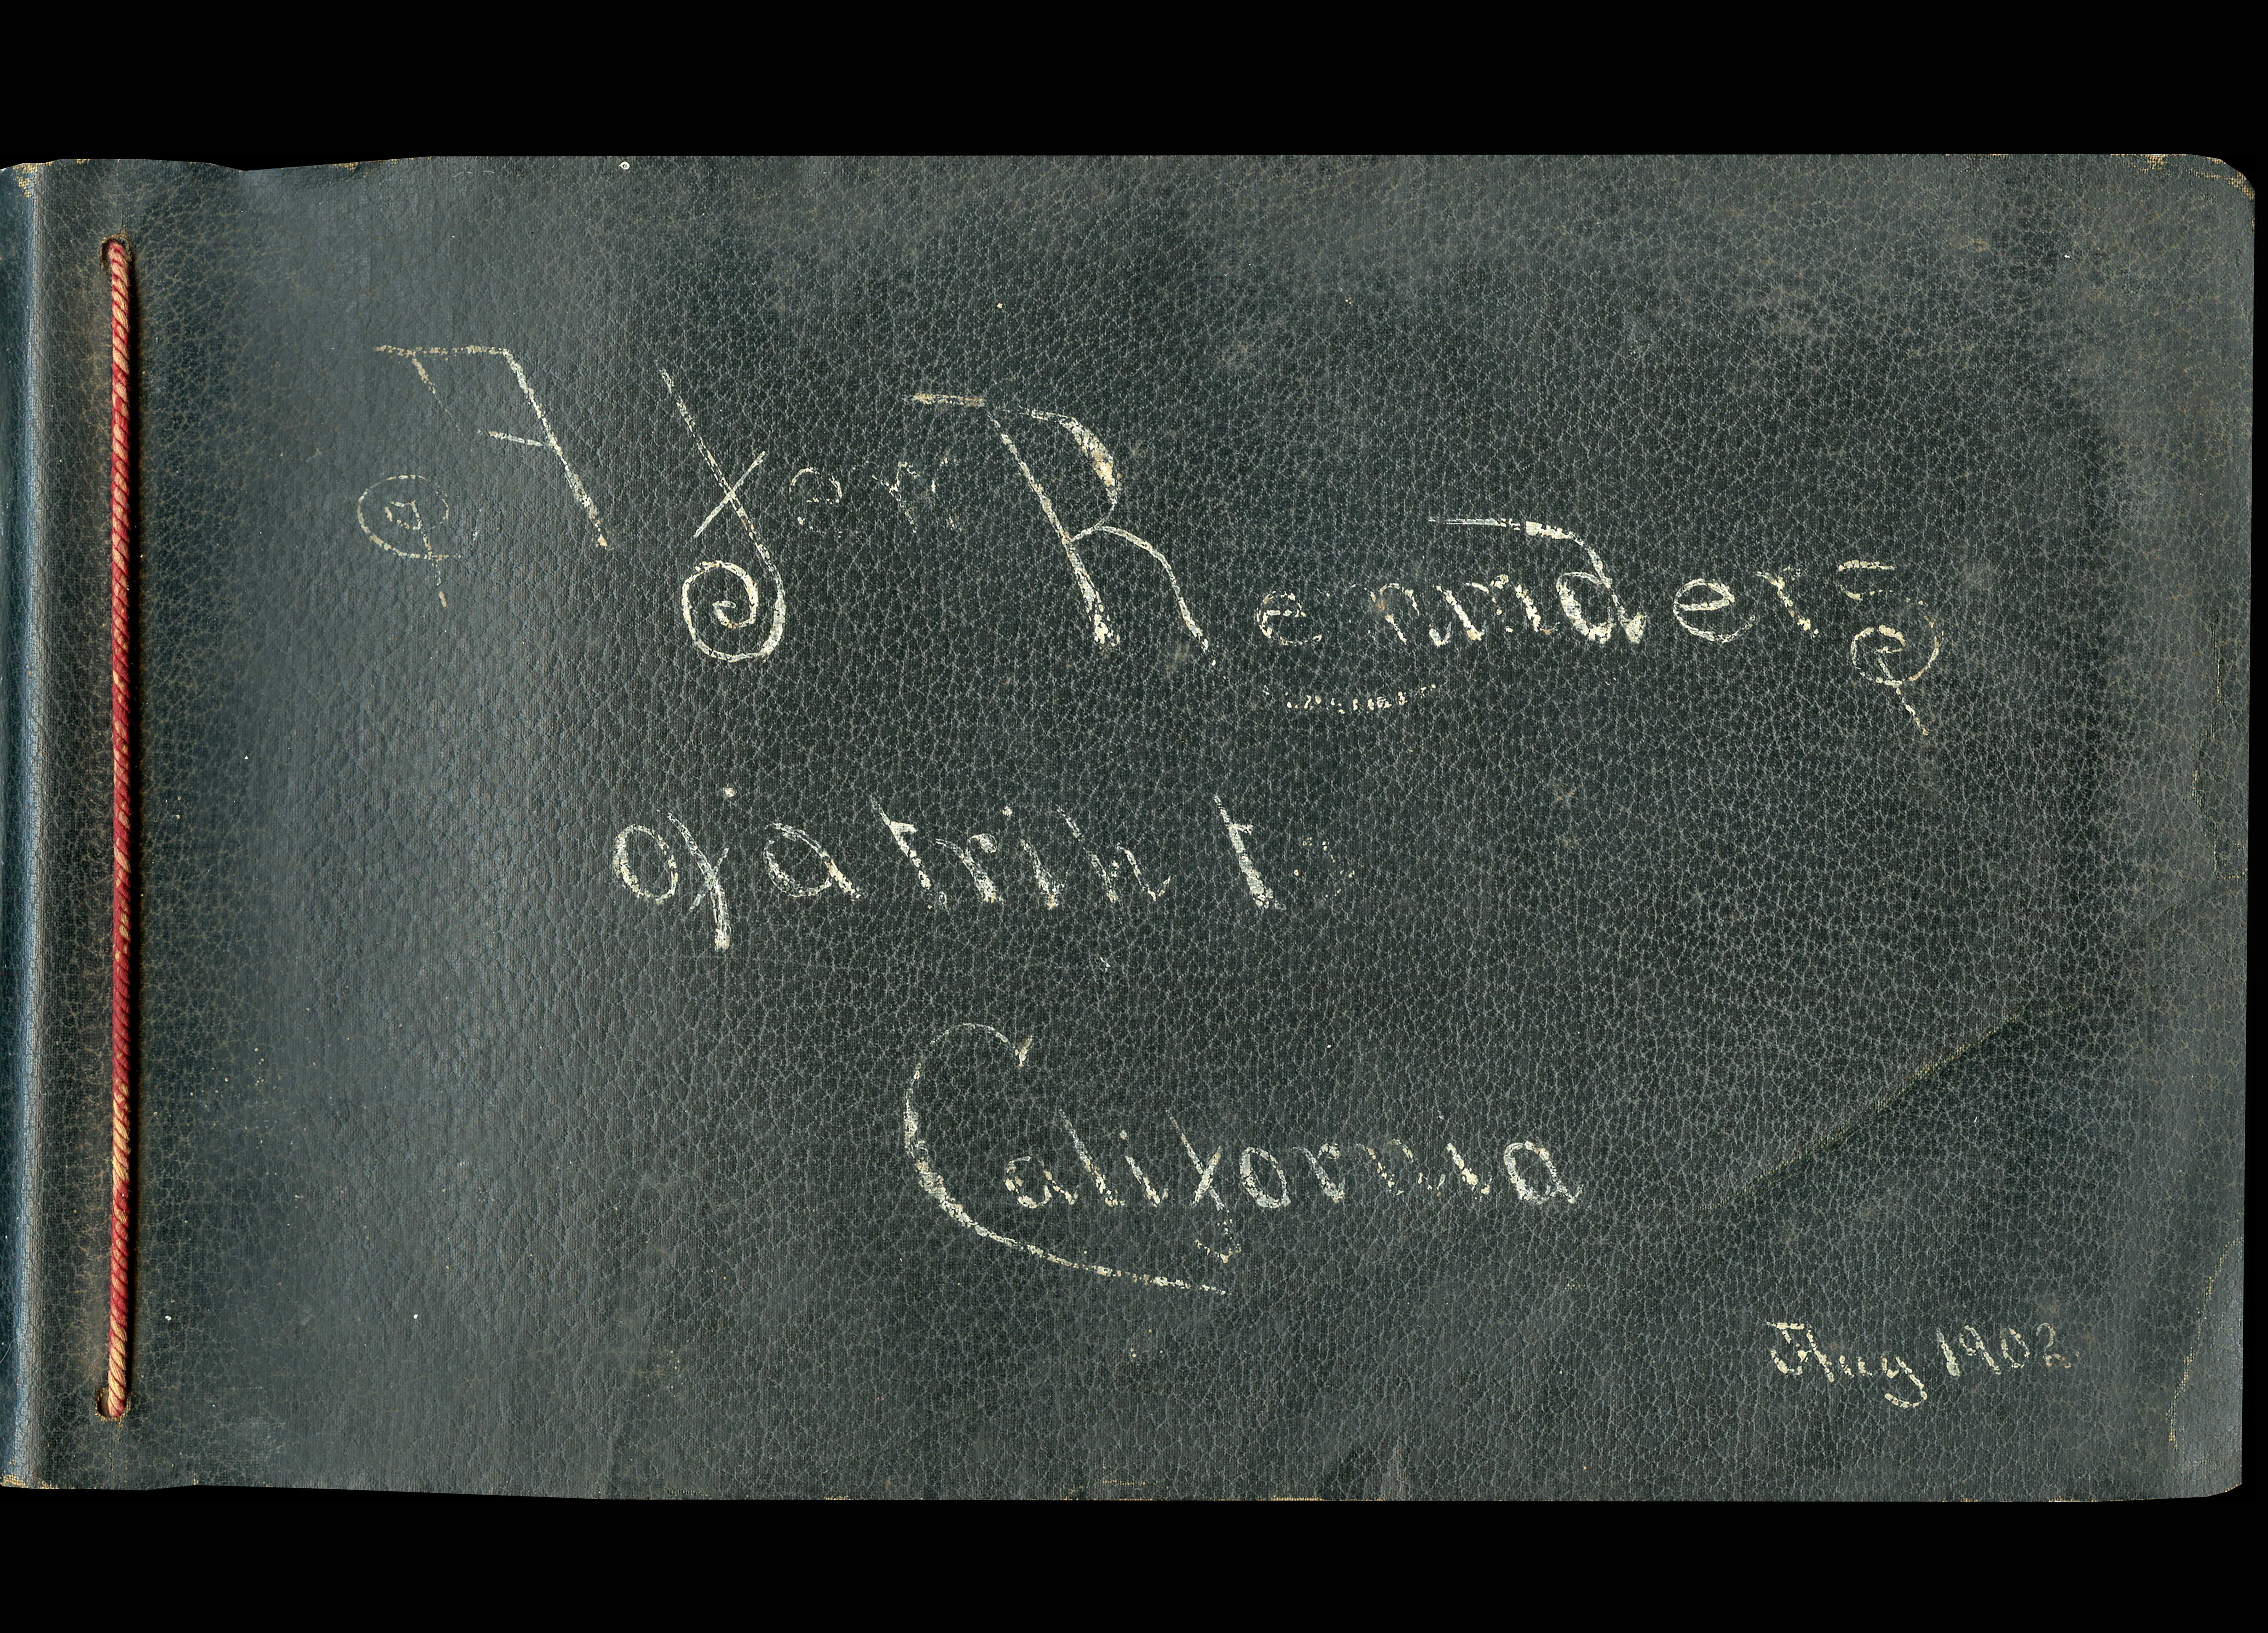 A few Reminders
of a trip to
California
Aug 1902